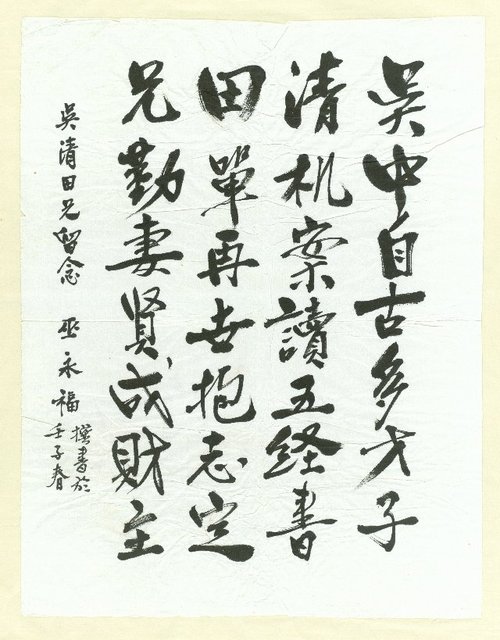 吳中自古多才子
清机案讀五经書
田單再世抱志定
兄勤妻贤成财主
吳清田兄留念 巫永福
撰書於
壬子春